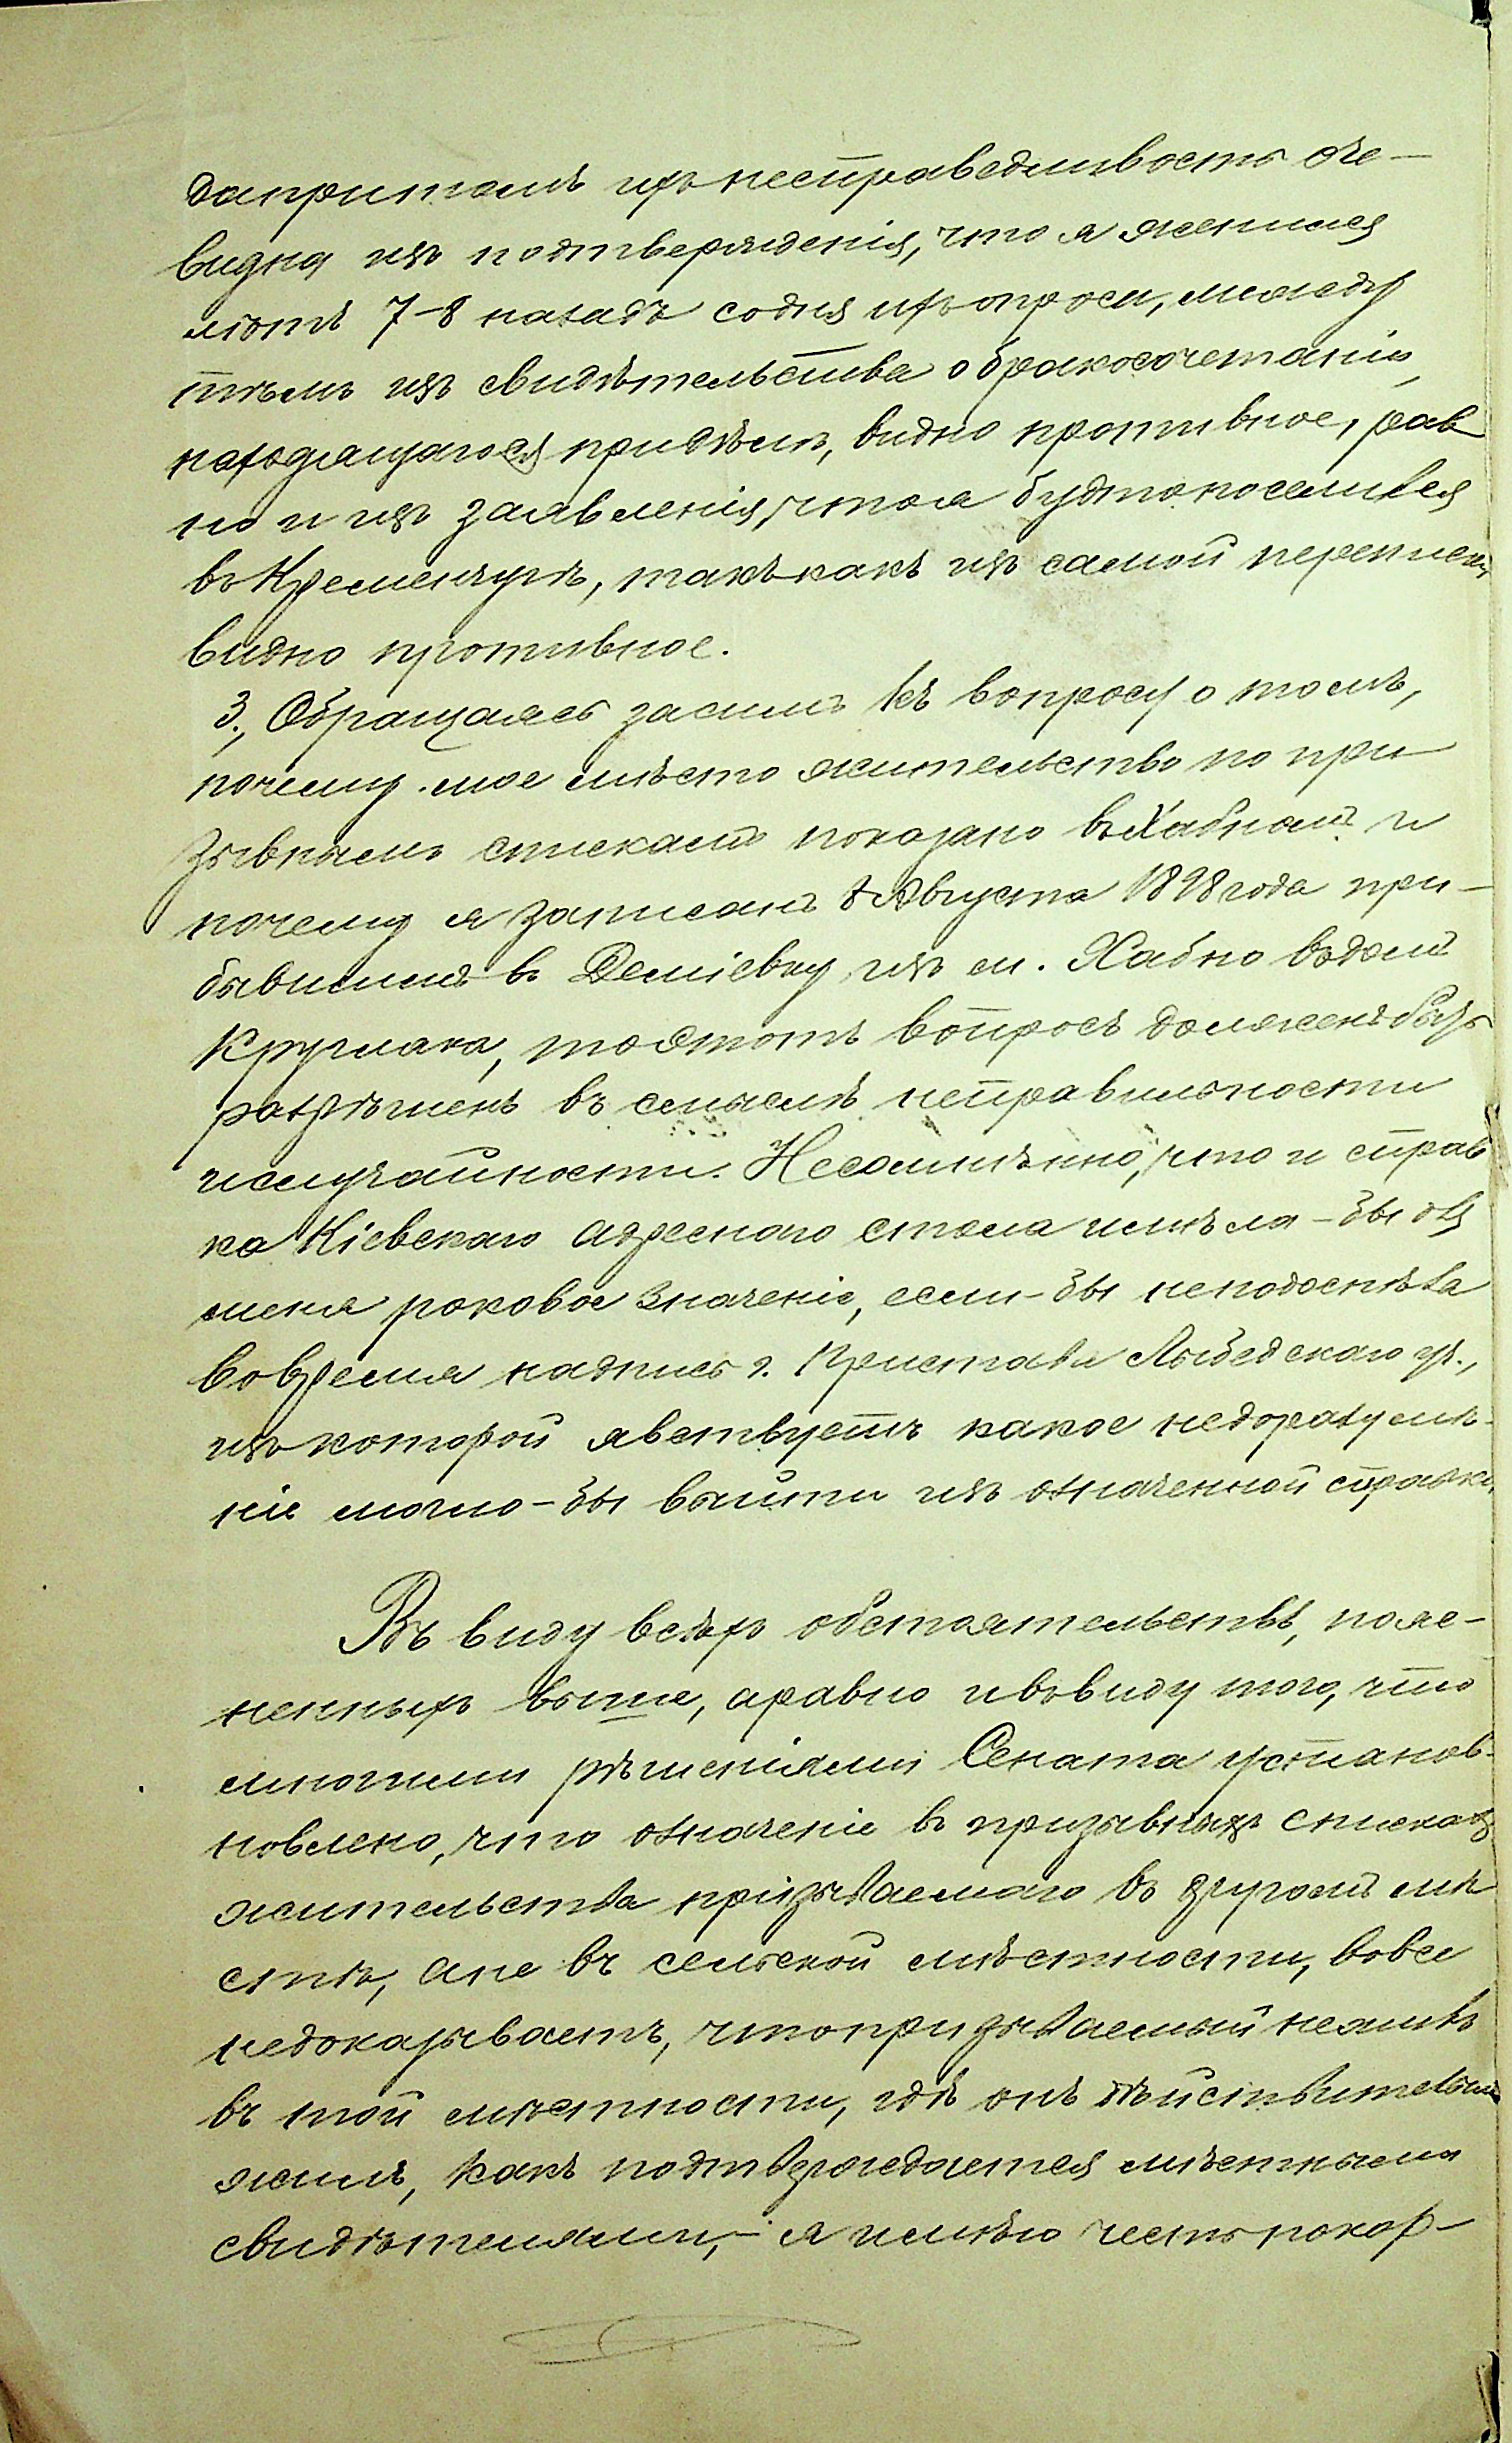 да притомъ ихъ несправедливость оче-
видна изъ подтвержденія, что я женился
лѣтъ 7-8 назадъ со дня ихъ опроса, между
тѣмъ изъ свидѣтельства о бракосочетаніи,
находящагося при дѣлѣ, видно противное, рав
но и изъ заявленія, что я будто поселился
въ Кременчугѣ, такъ какъ изъ самой переписки
видно противное.
3., Обращаясь засимъ къ вопросу о томъ,
почему мое мѣсто жительство по при
зывнымъ спискамъ показано въ Хабномъ и
почему я записанъ 8 Августа 1898 года при-
бывшимъ въ Деміевку изъ м. Хабно въ домъ
Круглака, то этотъ вопросъ долженъ быть
разрѣшенъ въ смыслѣ неправильности
и случайности. Несомнѣнно, что и справ
ка Кіевскаго адреснаго стола имѣла-бы для
меня роковое значеніе, если-бы не подоспѣла
во время надпись г. Пристава Лыбедскаго уч.,
изъ которой явствуетъ какое недоразумѣ-
ніе могло-бы выйти изъ означенной справки.
Въ виду всѣхъ обстоятельствъ, пояс-
ненныхъ выше, а равно и въ виду того, что
многими рѣшеніями Сената установ-
новлено, что означеніе въ призывныхъ спискахъ
жительства призываемаго въ другомъ мѣ
стѣ, а не въ сельской мѣстности, вовсе
не доказываетъ, что призываемый не жилъ
въ той мѣстности, гдѣ онъ дѣйствительно
жилъ, какъ подтверждается мѣстными
свидѣтелями,- я имѣю честь покор-